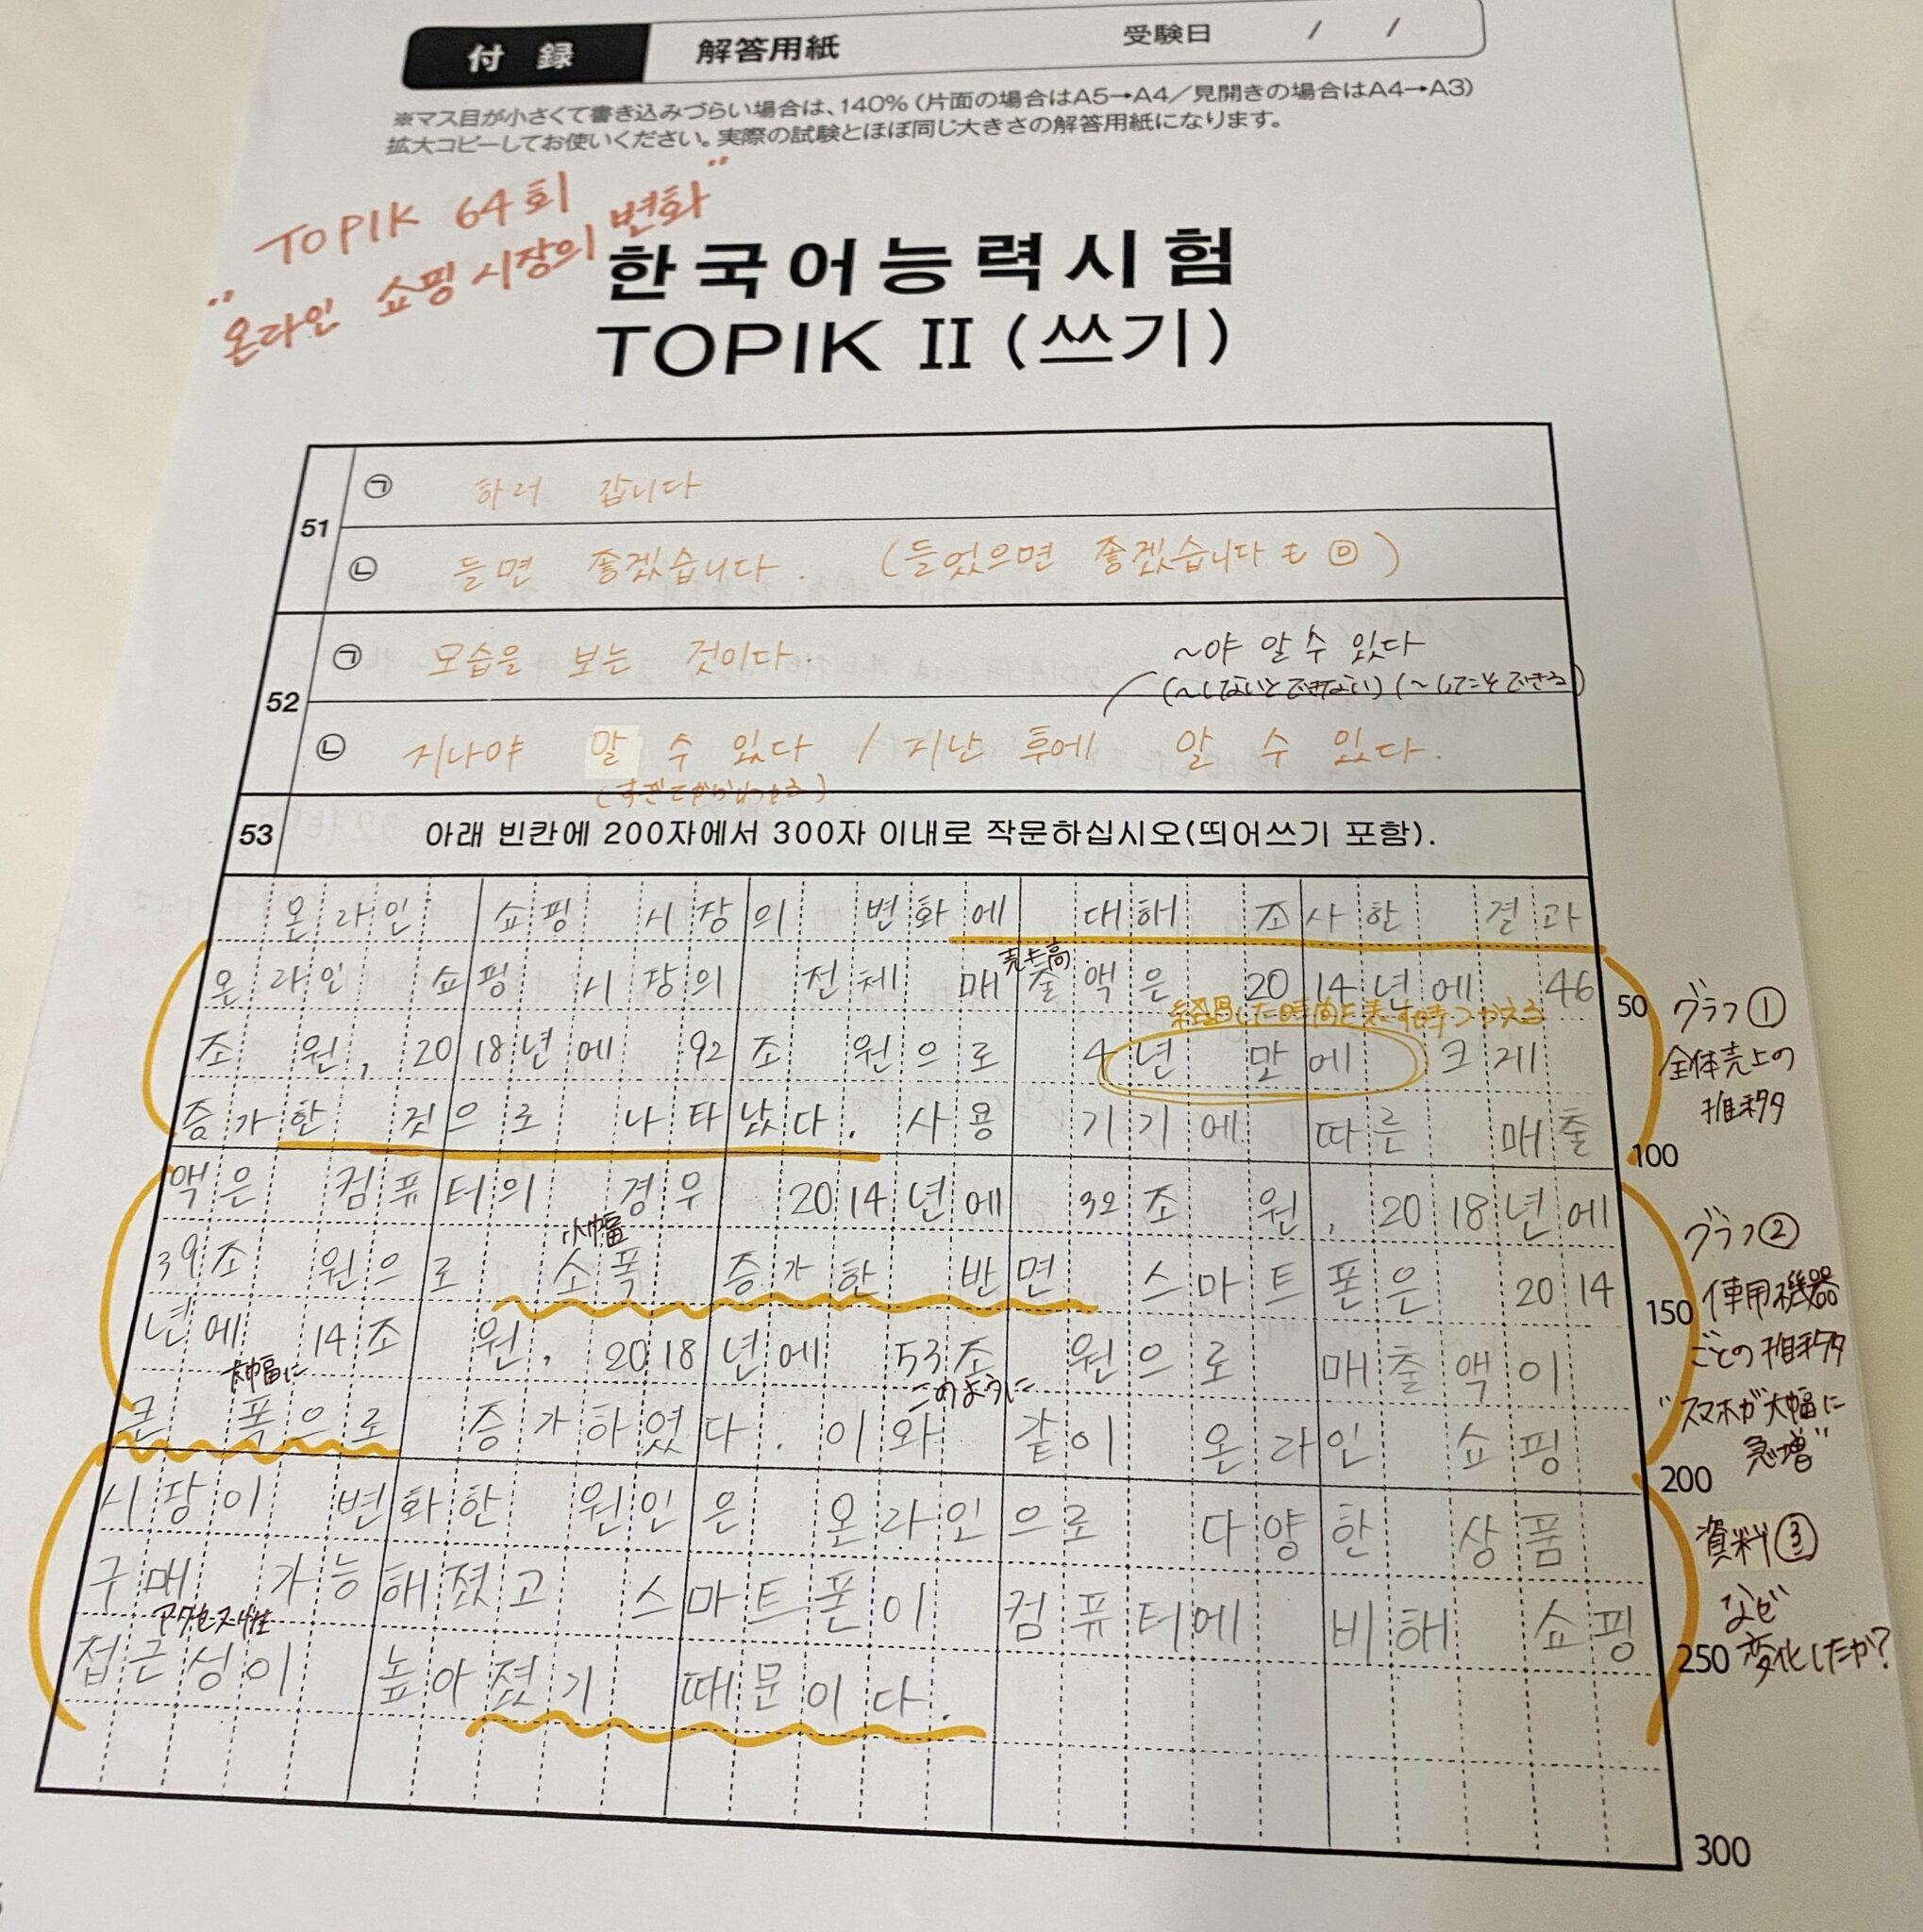 付録 解答用紙 受験日 / /
※マス目が小さくて書き込みづらい場合は、140%（片面の場合はA5→A4／見開きの場合はA4→A3）
拡大コピーしてお使いください。実際の試験とほぼ同じ大きさの解答用紙になります。
TOPIK 64회
"온라인 쇼핑 시장의 변화"
한국어능력시험
TOPIK II (쓰기)
51
㉠ 하러 갑니다
㉡ 들면 좋겠습니다. (들었으면 좋겠습니다も◎)
52
㉠ 모습을 보는 것이다.
~야 알 수 있다
(~しないとできない) (~してこそできる)
㉡ 지나야 알 수 있다 / 지난 후에 알 수 있다.
(すぎてからわかる)
53 아래 빈칸에 200자에서 300자 이내로 작문하십시오(띄어쓰기 포함).
온라인 쇼핑 시장의 변화에 대해 조사한 결과
売上高
온라인 쇼핑 시장의 전체 매출액은 2014년에 46
50
経過した時間を表す時つかえる
조 원, 2018년에 92조 원으로 4년 만에 크게
증가한 것으로 나타났다. 사용 기기에 따른 매출
100
グラフ①
全体売上の
推移
액은 컴퓨터의 경우 2014년에 32조 원, 2018년에
小幅
39조 원으로 소폭 증가한 반면 스마트폰은 2014
150
년에 14조 원, 2018년에 53조 원으로 매출액이
大幅に
このように
큰 폭으로 증가하였다. 이와 같이 온라인 쇼핑
200
グラフ②
使用機器
ごとの推移
"スマホが大幅に
急増"
시장이 변화한 원인은 온라인으로 다양한 상품
구매 가능해졌고 스마트폰이 컴퓨터에 비해 쇼핑
250
アクセス性
접근성이 높아졌기 때문이다.
資料③
なぜ
変化したか?
300